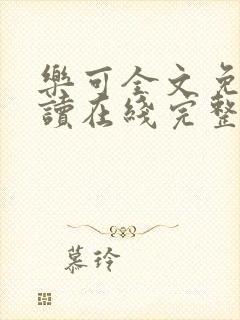 樂可全文免
讀在綫完整
慕玲